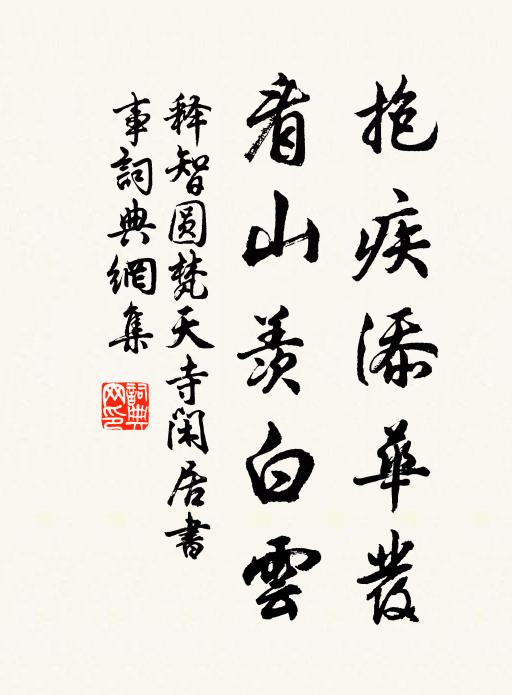 抱疾添華發
看山羨白雲
释智圆梵天寺闲居書
事詞典網集
詞典
网印